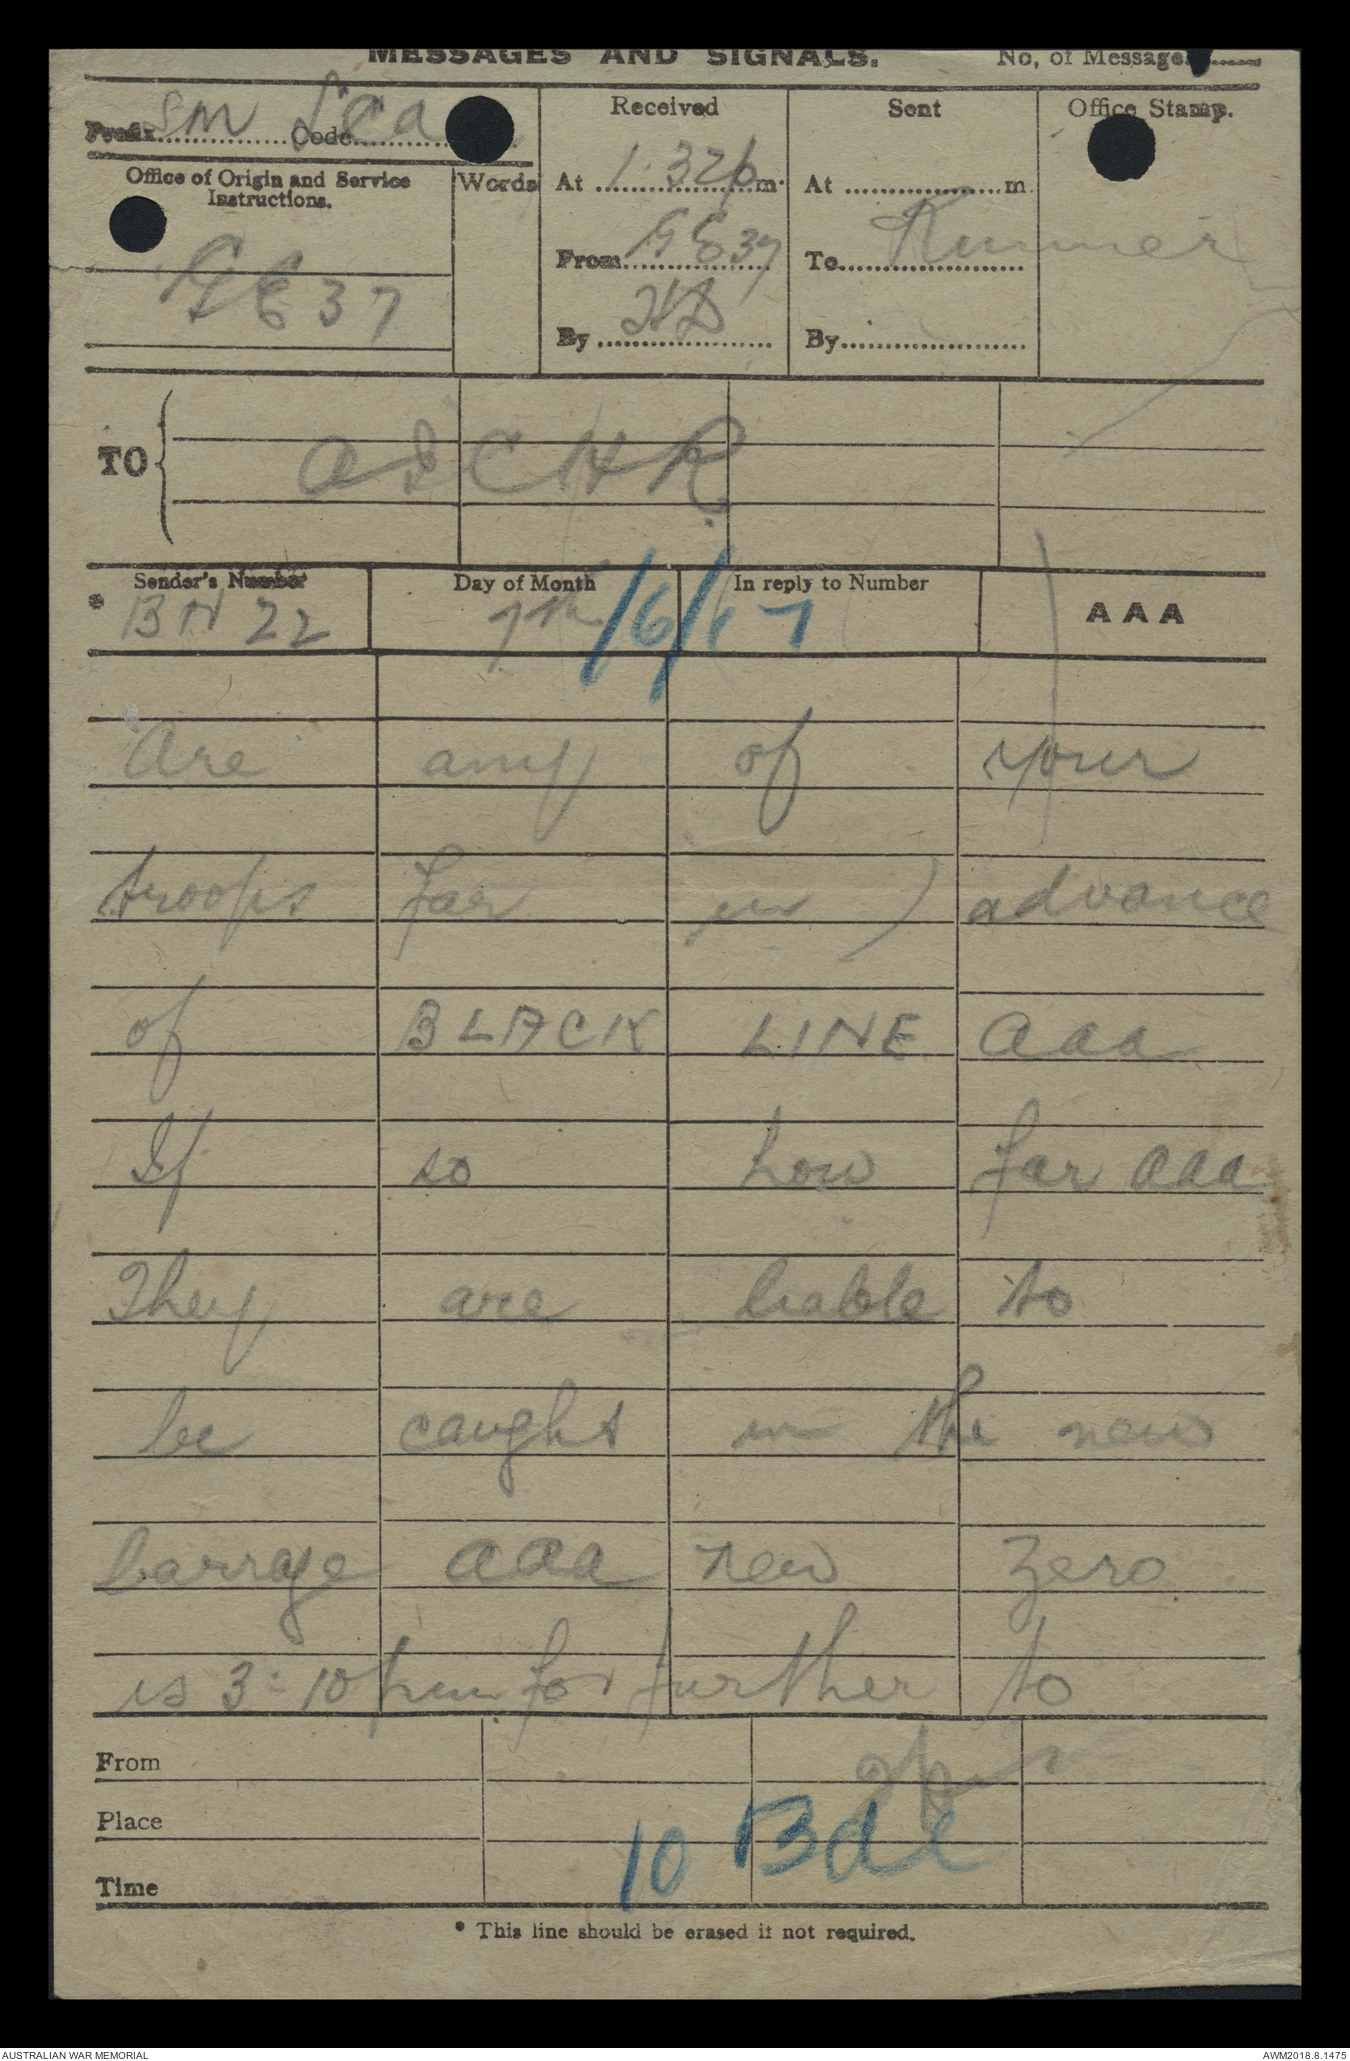 MESSAGES AND SIGNALS. No. of Messages
Prefix SM Code Received Sent Office Stamp.
Office of Origin and Service Instructions. Words At 1.32 p m. At m.
GE 37 From GE 37 To Runner
By By
TO
Sender's Number Day of Month In reply to Number AAA
* BN 22 7th /6/17
Are any of your
troops far in advance
of BLACK LINE aaa
If so how far aaa
They are liable to
be caught in the new
barrage aaa new zero
is 3:10 pm for further to
From
Place 10 Bde
Time
* This line should be erased if not required.
AUSTRALIAN WAR MEMORIAL AWM2018.8.1475